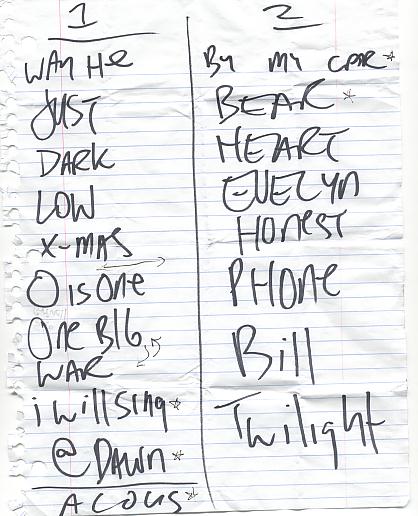 1
WAY He
JUST
DARK
LOW
X-MAS
O is One
One BIG
WAR
i will sing☆
@ DAWN☆
ACOUS☆
2
By my CPAR☆
BEAR☆
HEART
EVELYN
HONEST
PHONe
Bill
Twilight